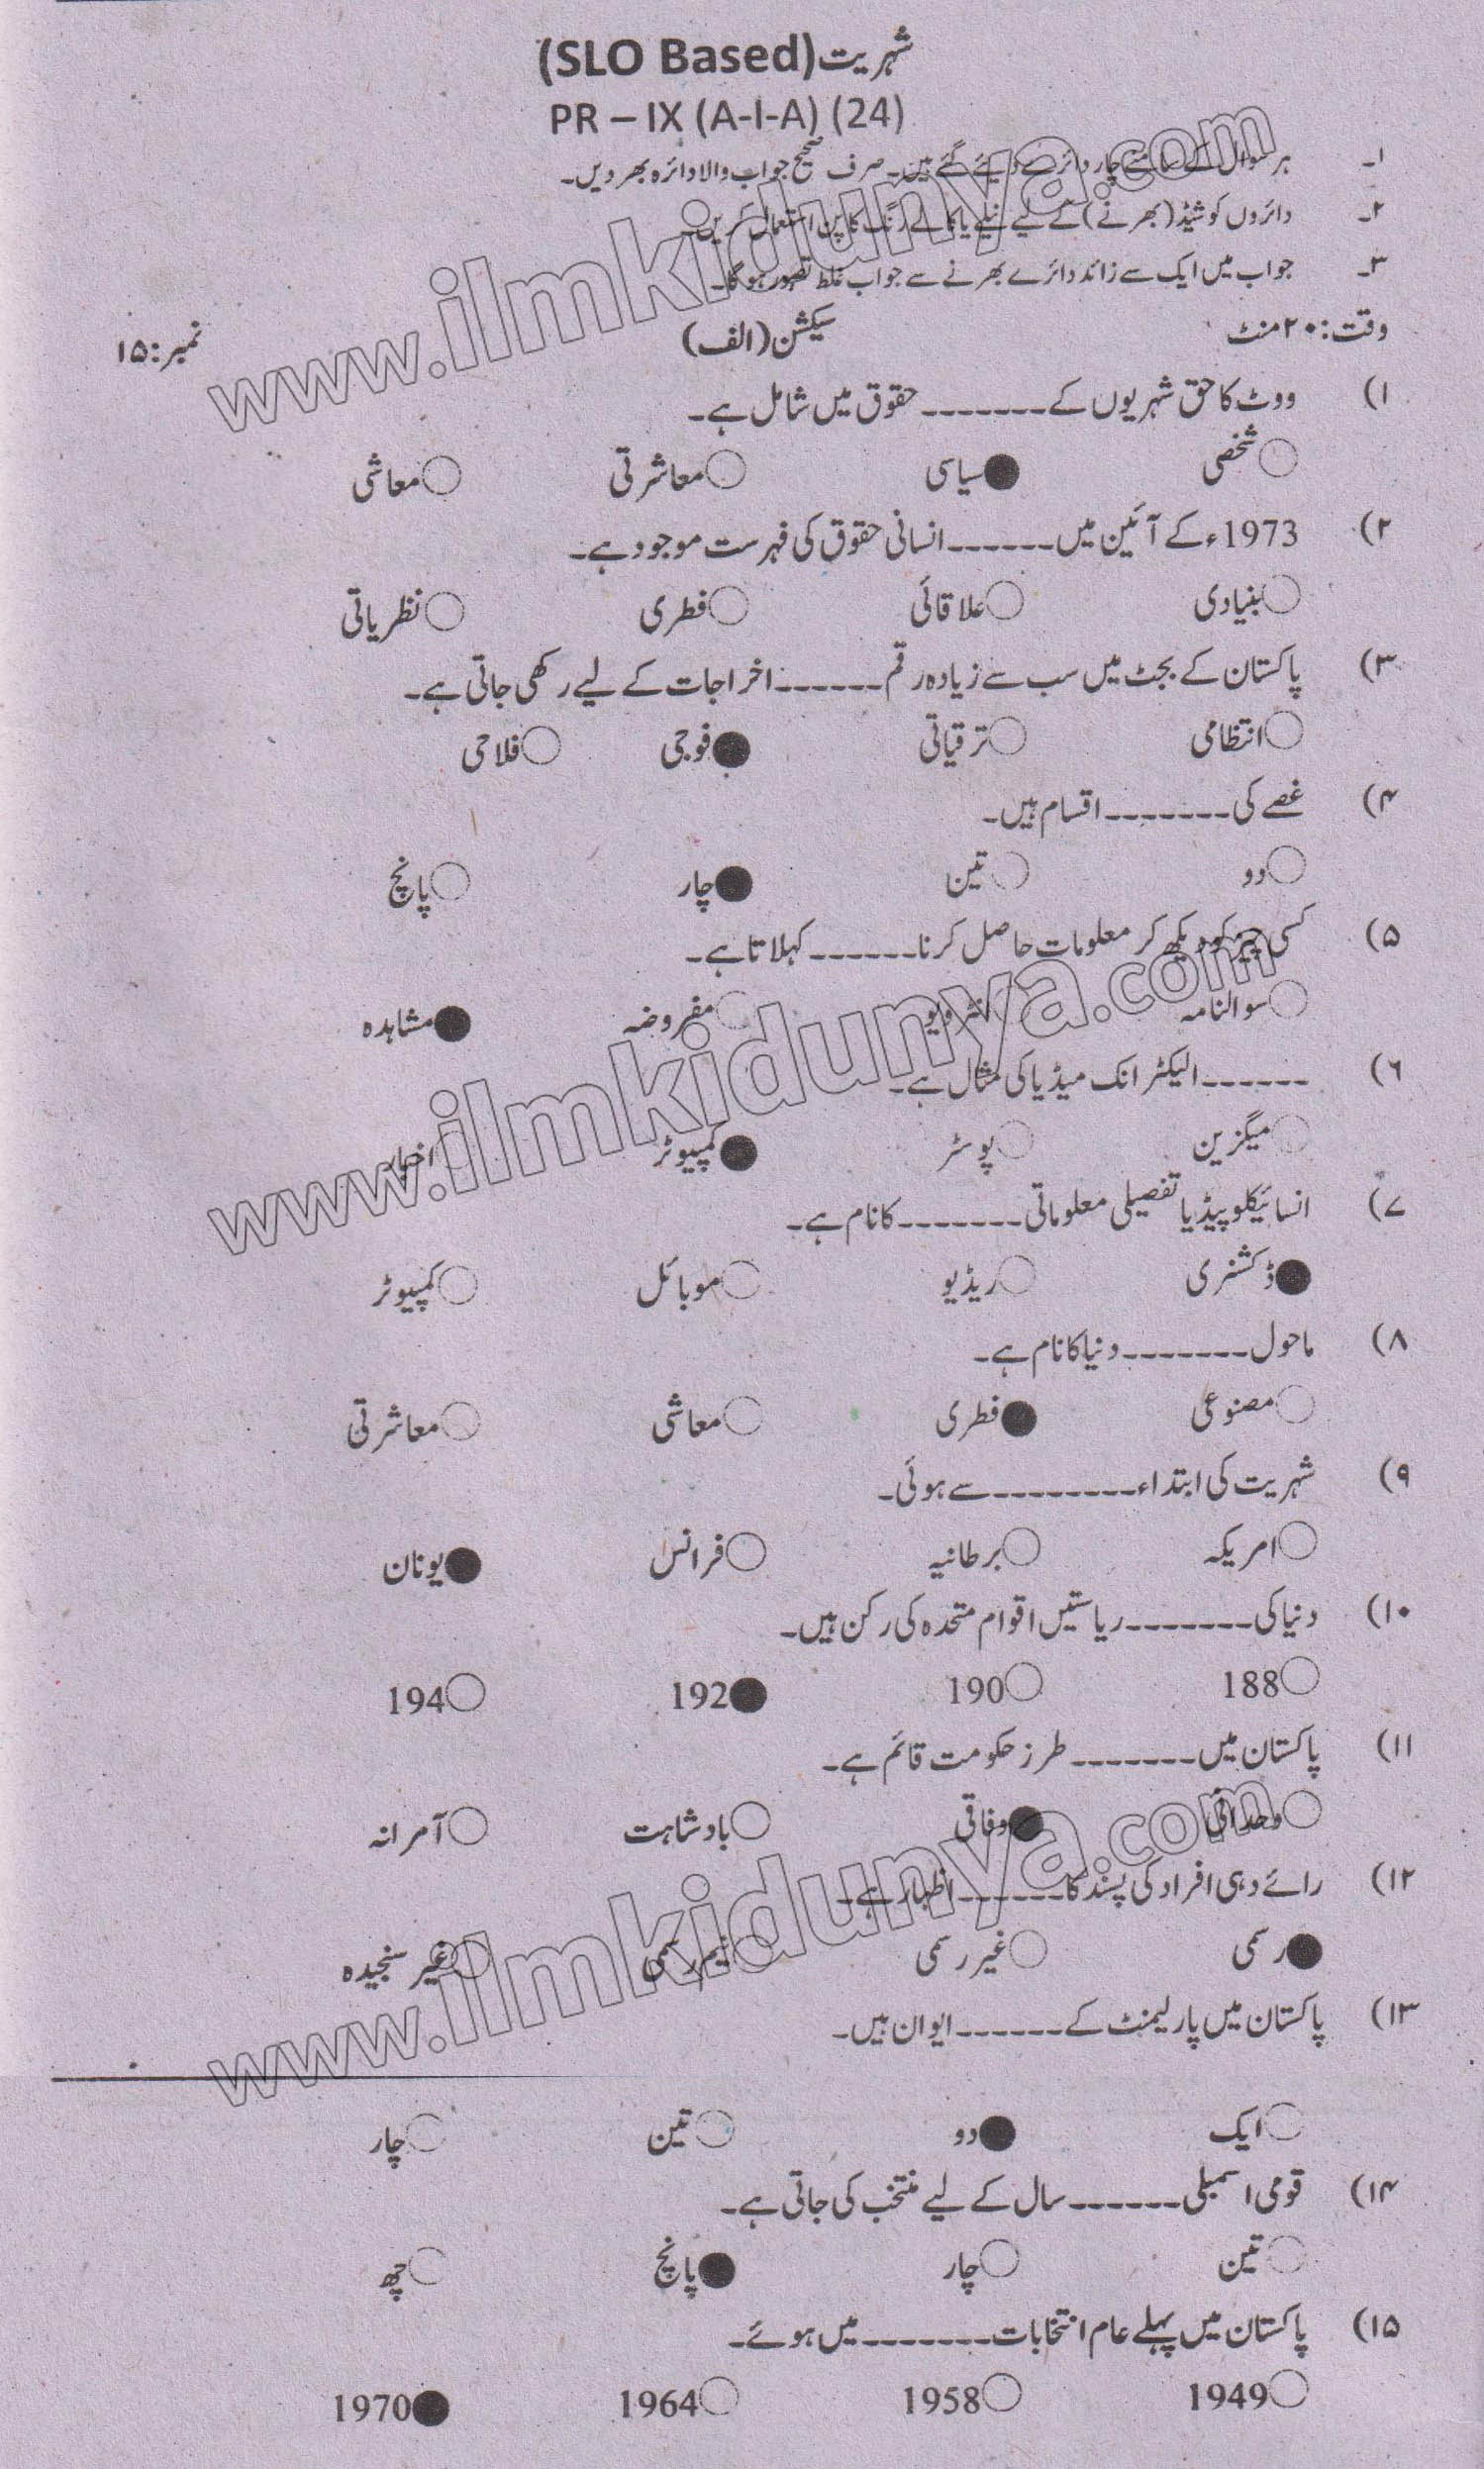 شہریت (SLO Based)
PR – IX (A-I-A) (24)
۱۔ ہر سوال کے سامنے چار دائرے دیئے گئے ہیں۔ صرف صحیح جواب والا دائرہ بھر دیں۔
۲۔ دائروں کو شیڈ (بھرنے) کے لیے نیلے یا کالے رنگ کا پن استعمال کریں۔
۳۔ جواب میں ایک سے زائد دائرے بھرنے سے جواب غلط تصور ہو گا۔
وقت: ۲۰ منٹ سیکشن (الف) نمبر: ۱۵
۱) ووٹ کا حق شہریوں کے ------- حقوق میں شامل ہے۔
○شخصی ●سیاسی ○معاشرتی ○معاشی
۲) 1973ء کے آئین میں ------ انسانی حقوق کی فہرست موجود ہے۔
○بنیادی ○علاقائی ○فطری ○نظریاتی
۳) پاکستان کے بجٹ میں سب سے زیادہ رقم ------ اخراجات کے لیے رکھی جاتی ہے۔
○انتظامی ○ترقیاتی ●فوجی ○فلاحی
۴) غصے کی ------- اقسام ہیں۔
○دو ○تین ●چار ○پانچ
۵) کسی چیز کو دیکھ کر معلومات حاصل کرنا ------ کہلاتا ہے۔
○سوالنامہ ○انٹرویو ○مفروضہ ●مشاہدہ
۶) ------ الیکٹرانک میڈیا کی مثال ہے۔
○میگزین ○پوسٹر ●کمپیوٹر ○اخبار
۷) انسائیکلوپیڈیا تفصیلی معلوماتی ------- کا نام ہے۔
●ڈکشنری ○ریڈیو ○موبائل ○کمپیوٹر
۸) ماحول ------- دنیا کا نام ہے۔
○مصنوعی ●فطری ○معاشی ○معاشرتی
۹) شہریت کی ابتداء -------- سے ہوئی۔
○امریکہ ○برطانیہ ○فرانس ●یونان
۱۰) دنیا کی ------- ریاستیں اقوام متحدہ کی رکن ہیں۔
○188 ○190 ●192 ○194
۱۱) پاکستان میں ------- طرز حکومت قائم ہے۔
○وحدانی ●وفاقی ○بادشاہت ○آمرانہ
۱۲) رائے دہی افراد کی پسند کا ------ اظہار ہے۔
●رسمی ○غیر رسمی ○نیم رسمی ○غیر سنجیدہ
۱۳) پاکستان میں پارلیمنٹ کے ------ ایوان ہیں۔
○ایک ●دو ○تین ○چار
۱۴) قومی اسمبلی ------ سال کے لیے منتخب کی جاتی ہے۔
○تین ○چار ●پانچ ○چھ
۱۵) پاکستان میں پہلے عام انتخابات ------- میں ہوئے۔
○1949 ○1958 ○1964 ●1970
www.ilmkidunya.com
www.ilmkidunya.com
www.ilmkidunya.com